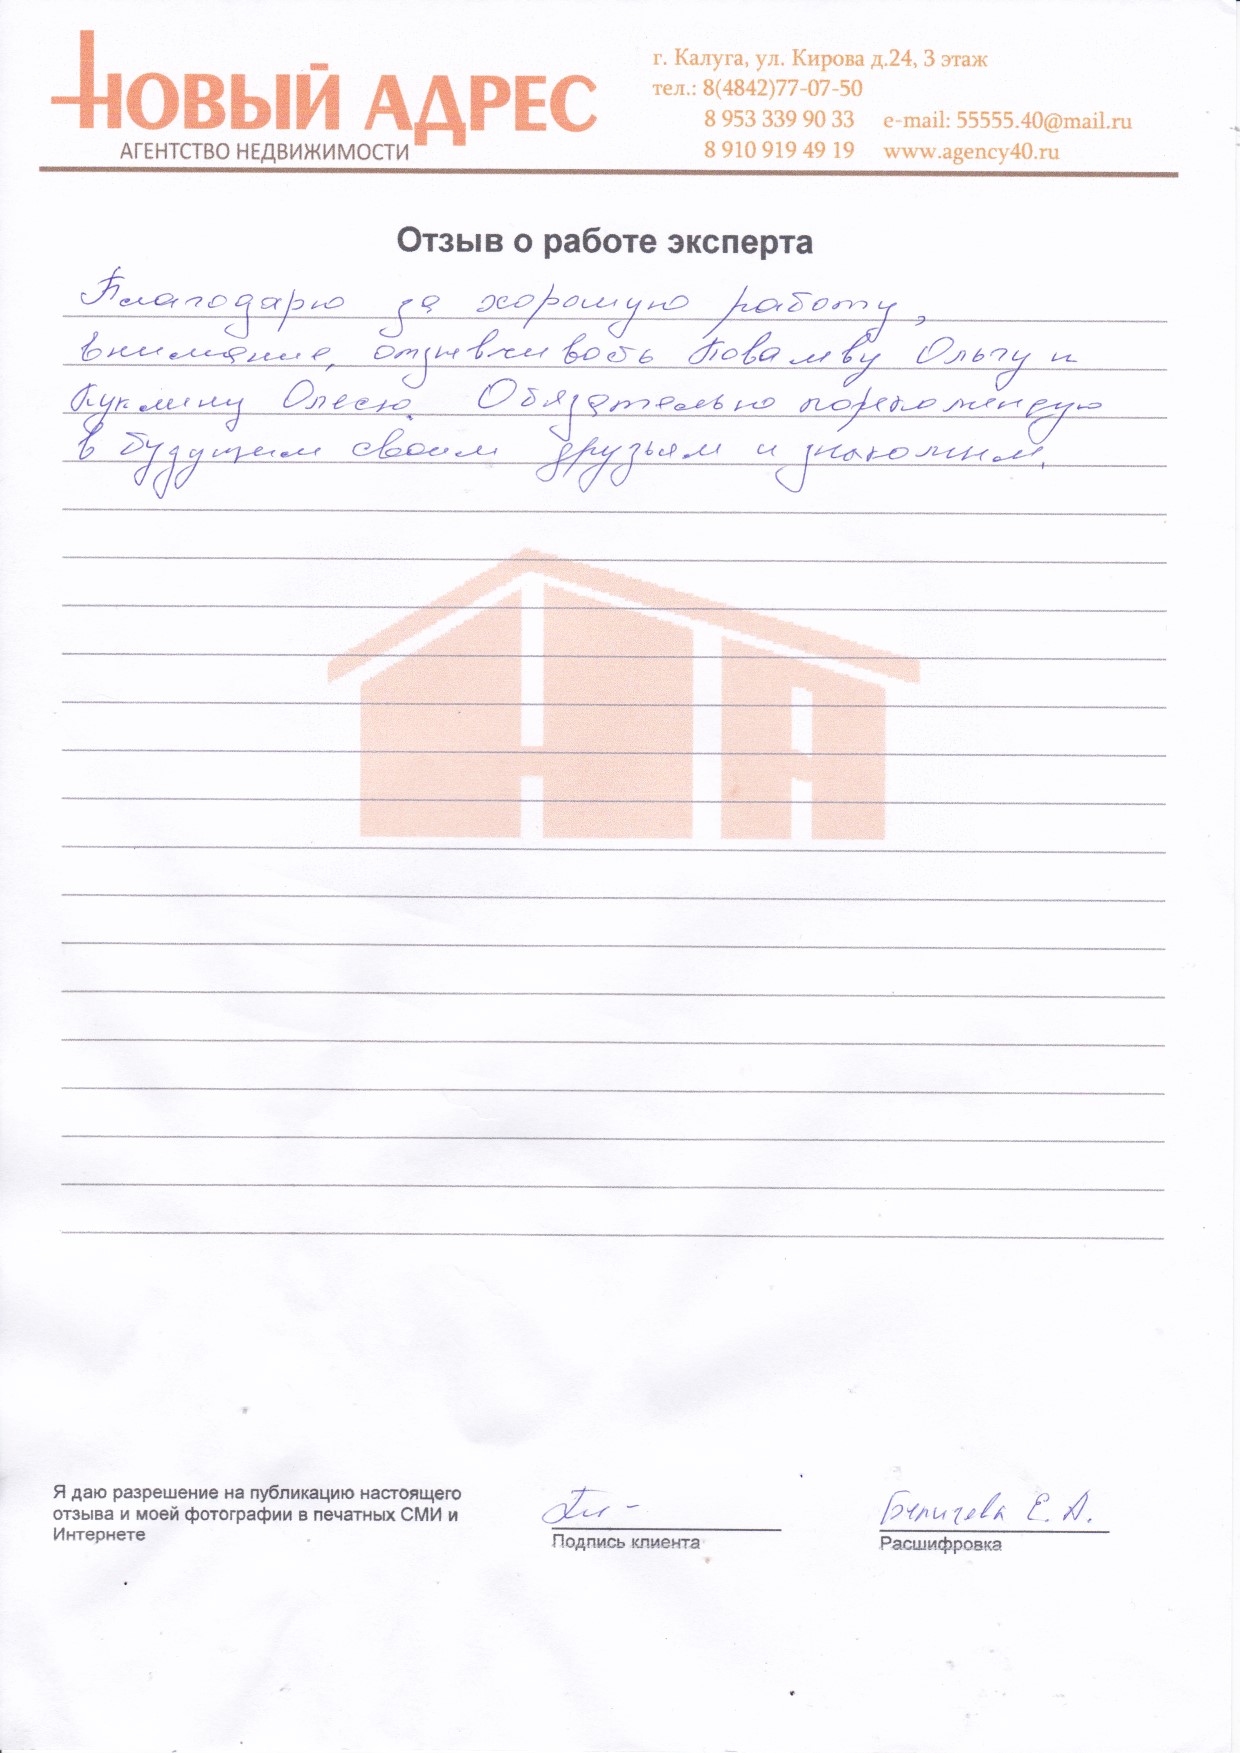 НОВЫЙ АДРЕС
АГЕНТСТВО НЕДВИЖИМОСТИ
г. Калуга, ул. Кирова д.24, 3 этаж
тел.: 8(4842)77-07-50
8 953 339 90 33 e-mail: 55555.40@mail.ru
8 910 919 49 19 www.agency40.ru
Отзыв о работе эксперта
Благодарю за хорошую работу,
внимание, отзывчивость Ольгу и
Куклину Олесю. Обязательно порекомендую
в будущем своим друзьям и знакомым.
Я даю разрешение на публикацию настоящего
отзыва и моей фотографии в печатных СМИ и
Интернете
Подпись клиента
Е. А.
Расшифровка